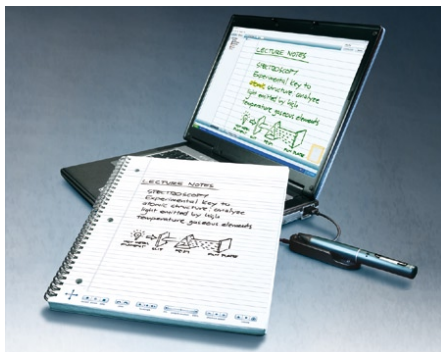 LECTURE NOTES
SPECTROSCOPY
Experimental key to
atomic structure: analyze
light emitted by high
temperature gaseous elements
LECTURE NOTES
SPECTROSCOPY
Experimental key to
atomic structure: analyze
light emitted by high
temperature gaseous elements
SLIT